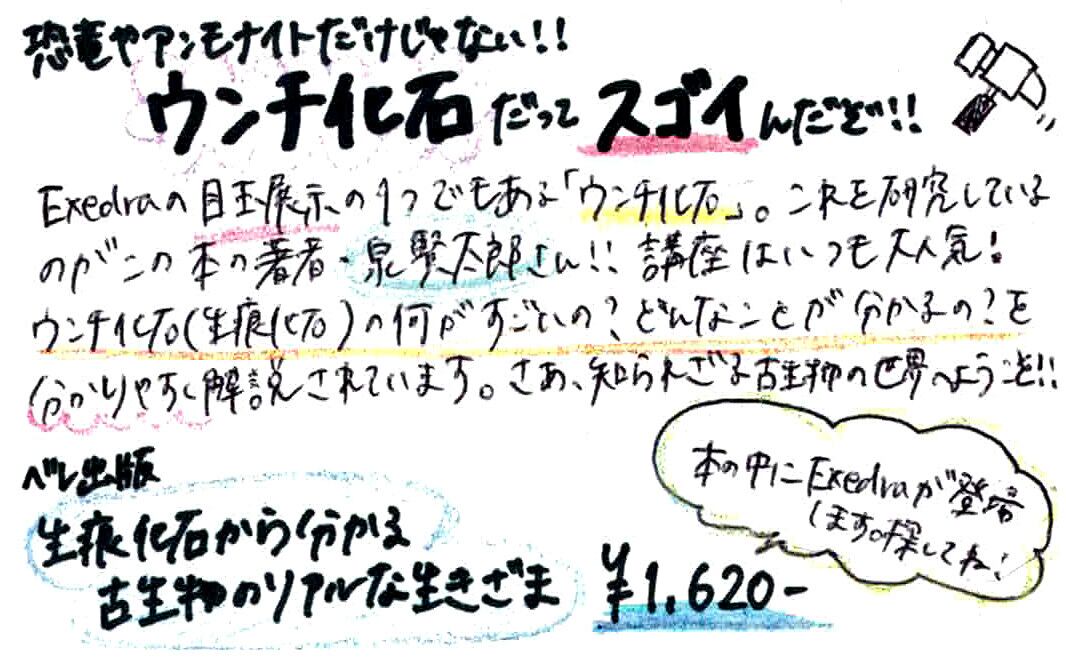 恐竜やアンモナイトだけじゃない!!
ウンチ化石だってスゴイんだぞ!!
Exedraの目玉展示の1つでもある「ウンチ化石」。これを研究している
のがこの本の著者・泉賢太郎さん!!講座はいつも大人気!
ウンチ化石(生痕化石)の何がすごいの?どんなことが分かるの?を
分かりやすく解説されています。さあ、知られざる古生物の世界へようこそ!!
ベレ出版
生痕化石から分かる
古生物のリアルな生きざま
¥1,620-
本の中にExedraが登場
します。探してね!